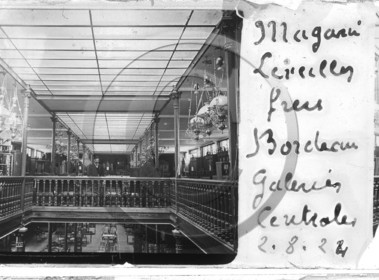 Magasin
Leveilley
frères
Bordeaux
Galeries
Centrales
2.8.24